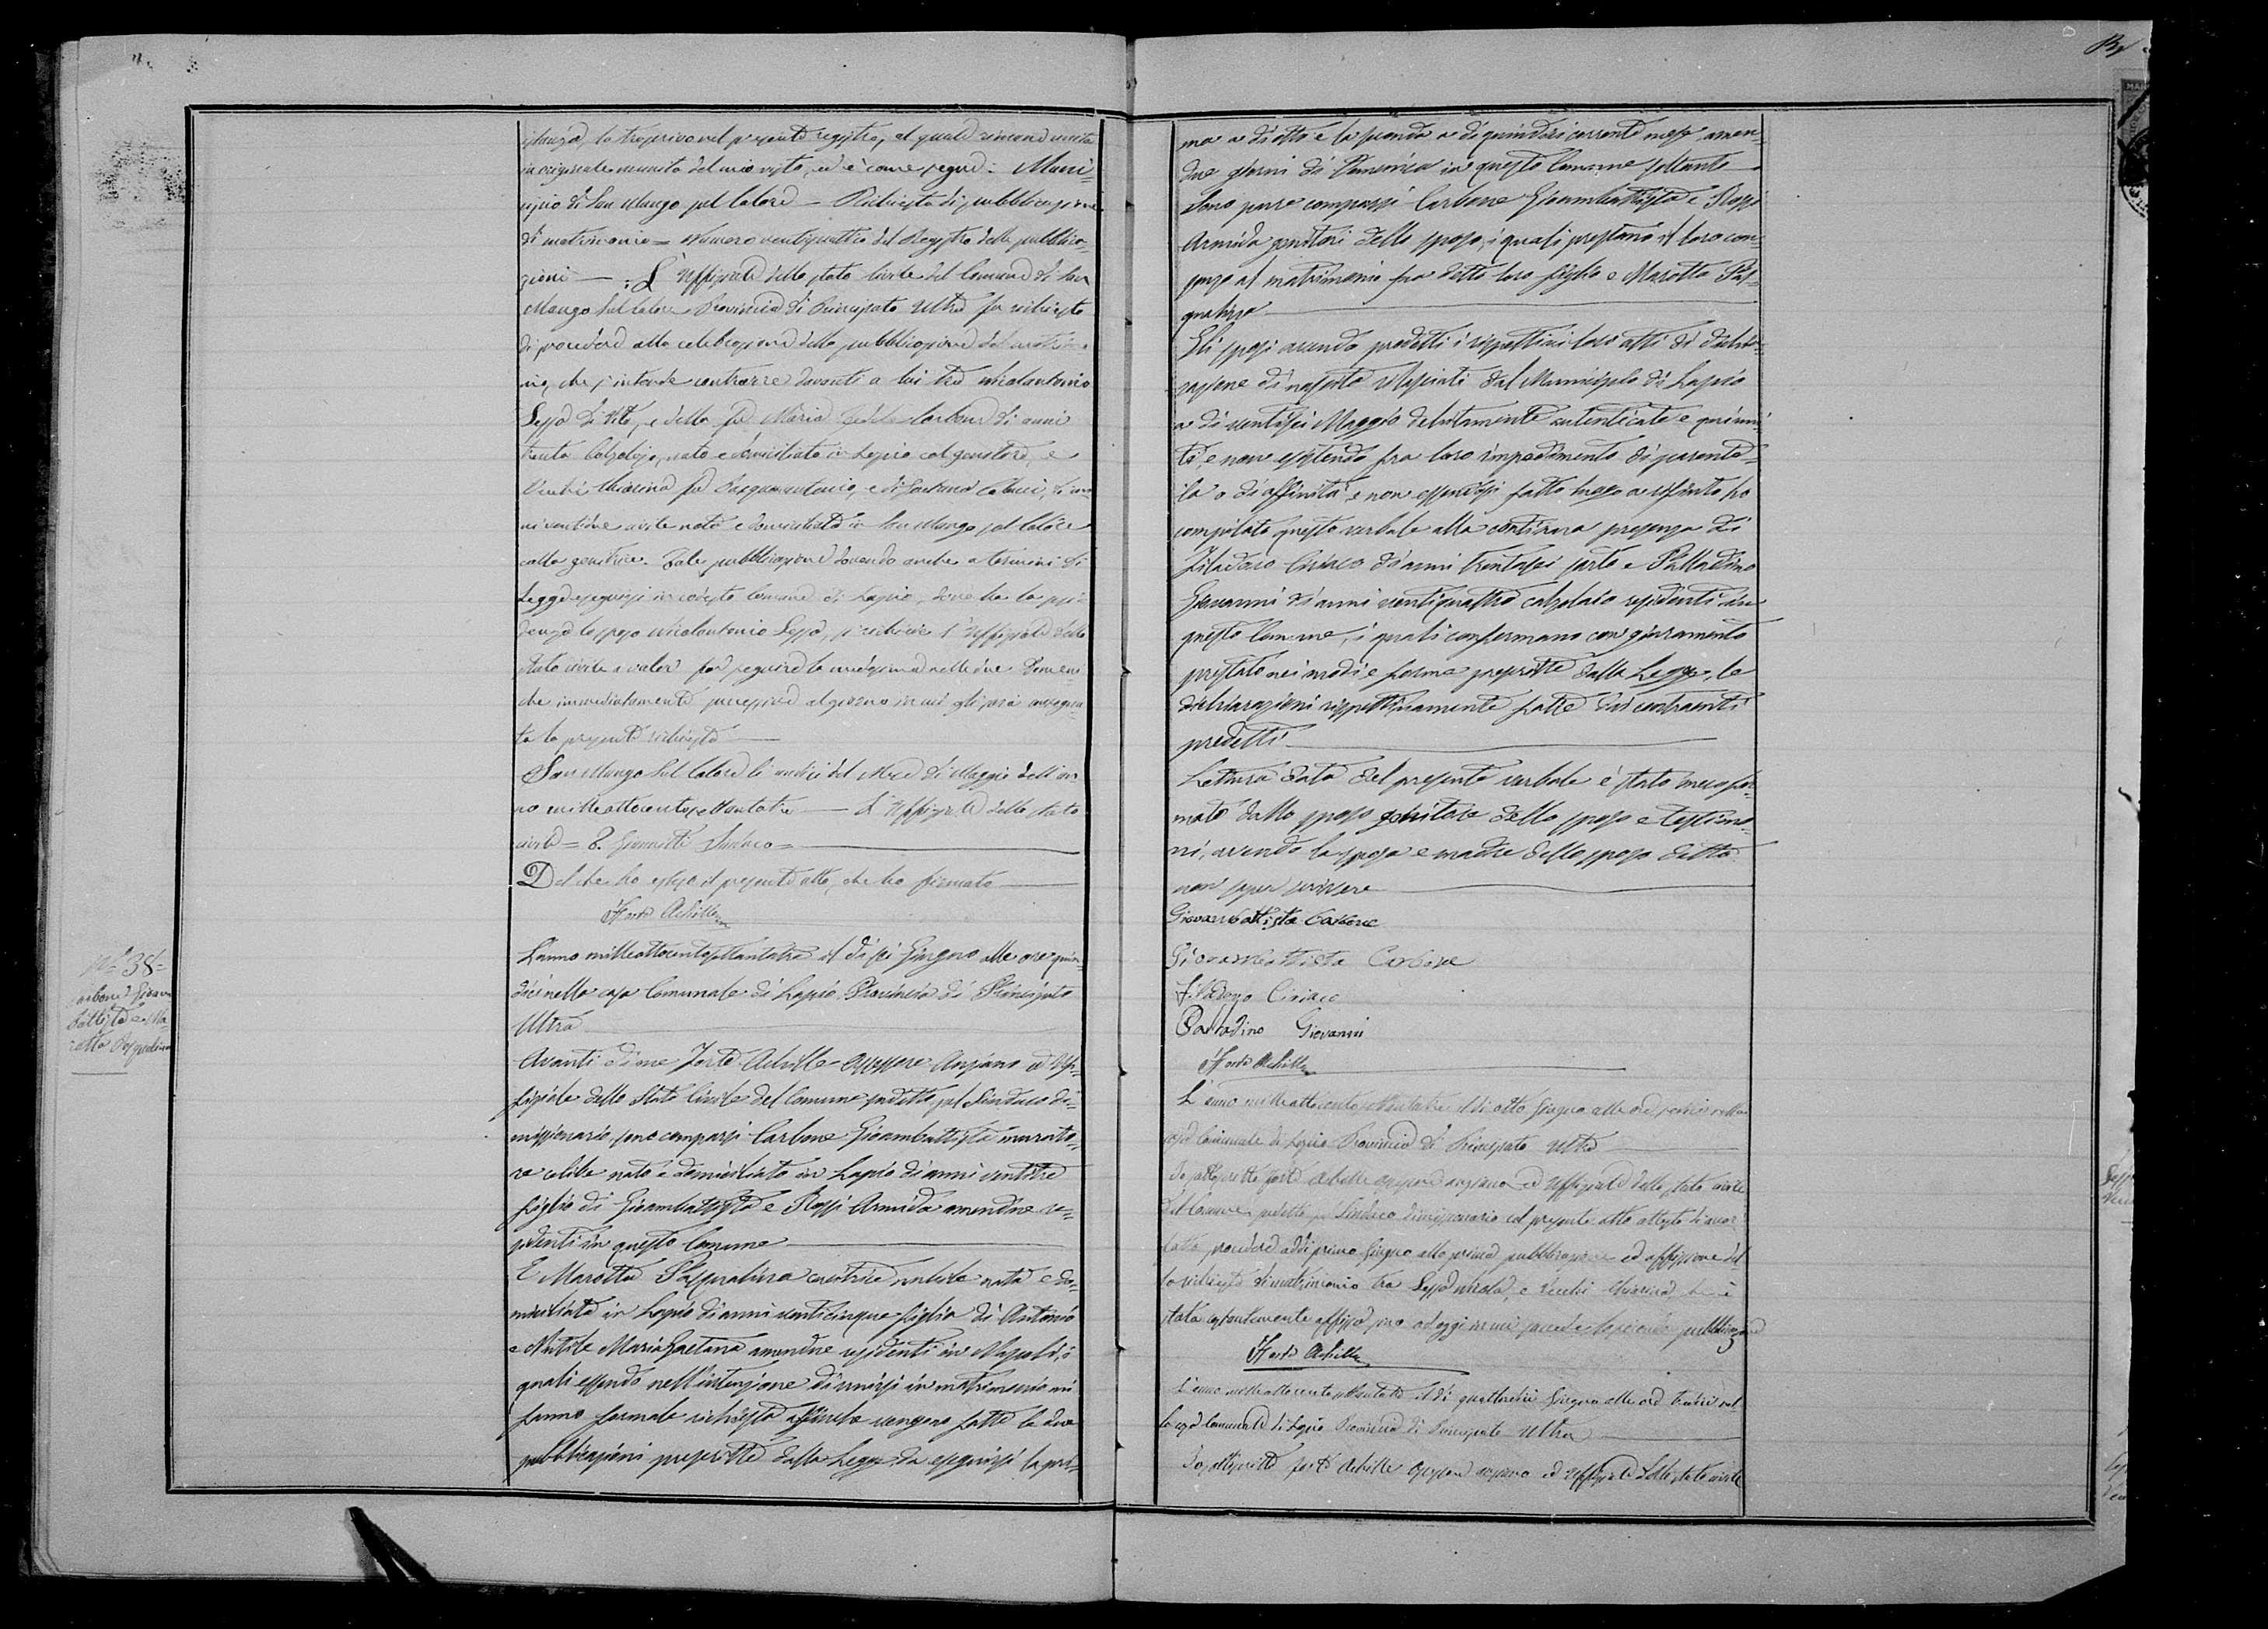 istanza, la trascrivo nel presente registro, al quale rimane unita
in originale munita del mio visto, ed è come segue: Muni-
cipio di San Mango sul Calore — Richiesta di pubblicazione
di matrimonio = Numero ventiquattro del Registro delle pubblica-
zioni — L'Uffiziale dello stato civile del Comune di San
Mango sul Calore Provincia di Principato Ultra fa richiesta
di procedere alla celebrazione della pubblicazione del matrimo-
nio, che s'intende contrarre davanti a lui tra Nicolantonio
di Vito, e della fu Maria Carbone di anni
trenta Calzolajo, nato e domiciliato in Lapio col genitore, e
Chiarina fu Pasquantonio, e di di an-
ni ventidue nubile nata e domiciliata in San Mango sul Calore
colla genitrice. Tale pubblicazione dovendo anche a termini di
Legge eseguirsi in codesto Comune di Lapio, dove ha la resi-
denza lo sposo Nicolantonio si richiede l'Uffiziale dello
stato civile a voler far seguire la medesima nelle due Domeni-
che immediatamente successive al giorno in cui gli sarà consegna-
ta la presente richiesta
San Mango sul Calore li undici del Mese di Maggio dell'an-
no milleottocentosettantatre — L'Uffiziale dello stato
civile = Sindaco =
Del che ho esteso il presente atto, che ho firmato
Forte Achille
No 38=
Carbone Giovan
Battista e Ma-
rotta Pasqualina
L'anno milleottocentosettantatre il dì sei Giugno alle ore quin-
dici nella casa Comunale di Lapio Provincia di Principato
Ultra
Avanti di me Forte Achille Assessore Anziano ed Uf-
fiziale dello Stato Civile del Comune suddetto pel Sindaco di-
missionario, sono comparsi Carbone Giambattista murato-
re celibe nato e domiciliato in Lapio di anni ventitre
figlio di Giambattista e Rossi Armida amendue re-
sidenti in questo Comune
E Marotta Pasqualina cucitrice, nubile nata e do-
miciliata in Lapio di anni venticinque figlia di Antonio
e Maria Gaetana amendue residenti in Napoli, i
quali essendo nell'intenzione di unirsi in matrimonio mi
fanno formale richiesta affinchè vengano fatte le due
pubblicazioni prescritte dalla Legge da eseguirsi la pri-
ma a dì otto e la seconda a dì quindici corrente mese amen-
due giorni di Domenica in questo Comune soltanto
Sono pure comparsi Carbone Giambattista e Rossi
Armida genitori dello sposo, i quali prestano il loro con-
senso al matrimonio fra detto loro figlio e Marotta Pas-
qualina
Gli sposi avendo prodotti i rispettivi loro atti di dichia-
razione di nascita rilasciati dal Municipio di Lapio
a dì ventisei Maggio debitamente autenticate e
e non esistendo fra loro impedimento di parente-
la o di affinità e non essendosi fatto luogo a rifiuto ho
compilato questo verbale alla continua presenza di
Filadoro Ciriaco di anni trentasei sarto e Palladino
Giovanni di anni ventiquattro calzolaio residenti in
questo Comune, i quali confermano con giuramento
prestato nei modi e forme prescritte dalla Legge, le
dichiarazioni rispettivamente fatte dai contraenti
predetti
Lettura data del presente verbale è stato meco fir-
mato dallo sposo genitore dello sposo e testimo-
ni, avendo la sposa e madre dello sposo detto
non saper scrivere
Giovanbattista Carbone
Giovanbattista Carbone
Filadoro Ciriaco
Palladino Giovanni
Forte Achille
L'anno milleottocentosettantatre il dì otto Giugno alle ore nella
casa Comunale di Lapio Provincia di Principato Ultra
Io sottoscritto Forte Achille Assessore anziano ed Uffiziale dello stato civile
del Comune suddetto pel Sindaco dimissionario col presente atto attesto di aver
fatto procedere addì primo Giugno alla prima pubblicazione ed affissione del-
la richiesta di matrimonio tra e Chiarina che è
stata costantemente affissa sino ad oggi in cui la seconda pubblicazione
Forte Achille
L'anno milleottocentosettantatre il dì quattordici Giugno alle ore tredici nel-
la casa Comunale di Lapio Provincia di Principato Ultra
Io sottoscritto Forte Achille Assessore anziano ed Uffiziale dello stato civile